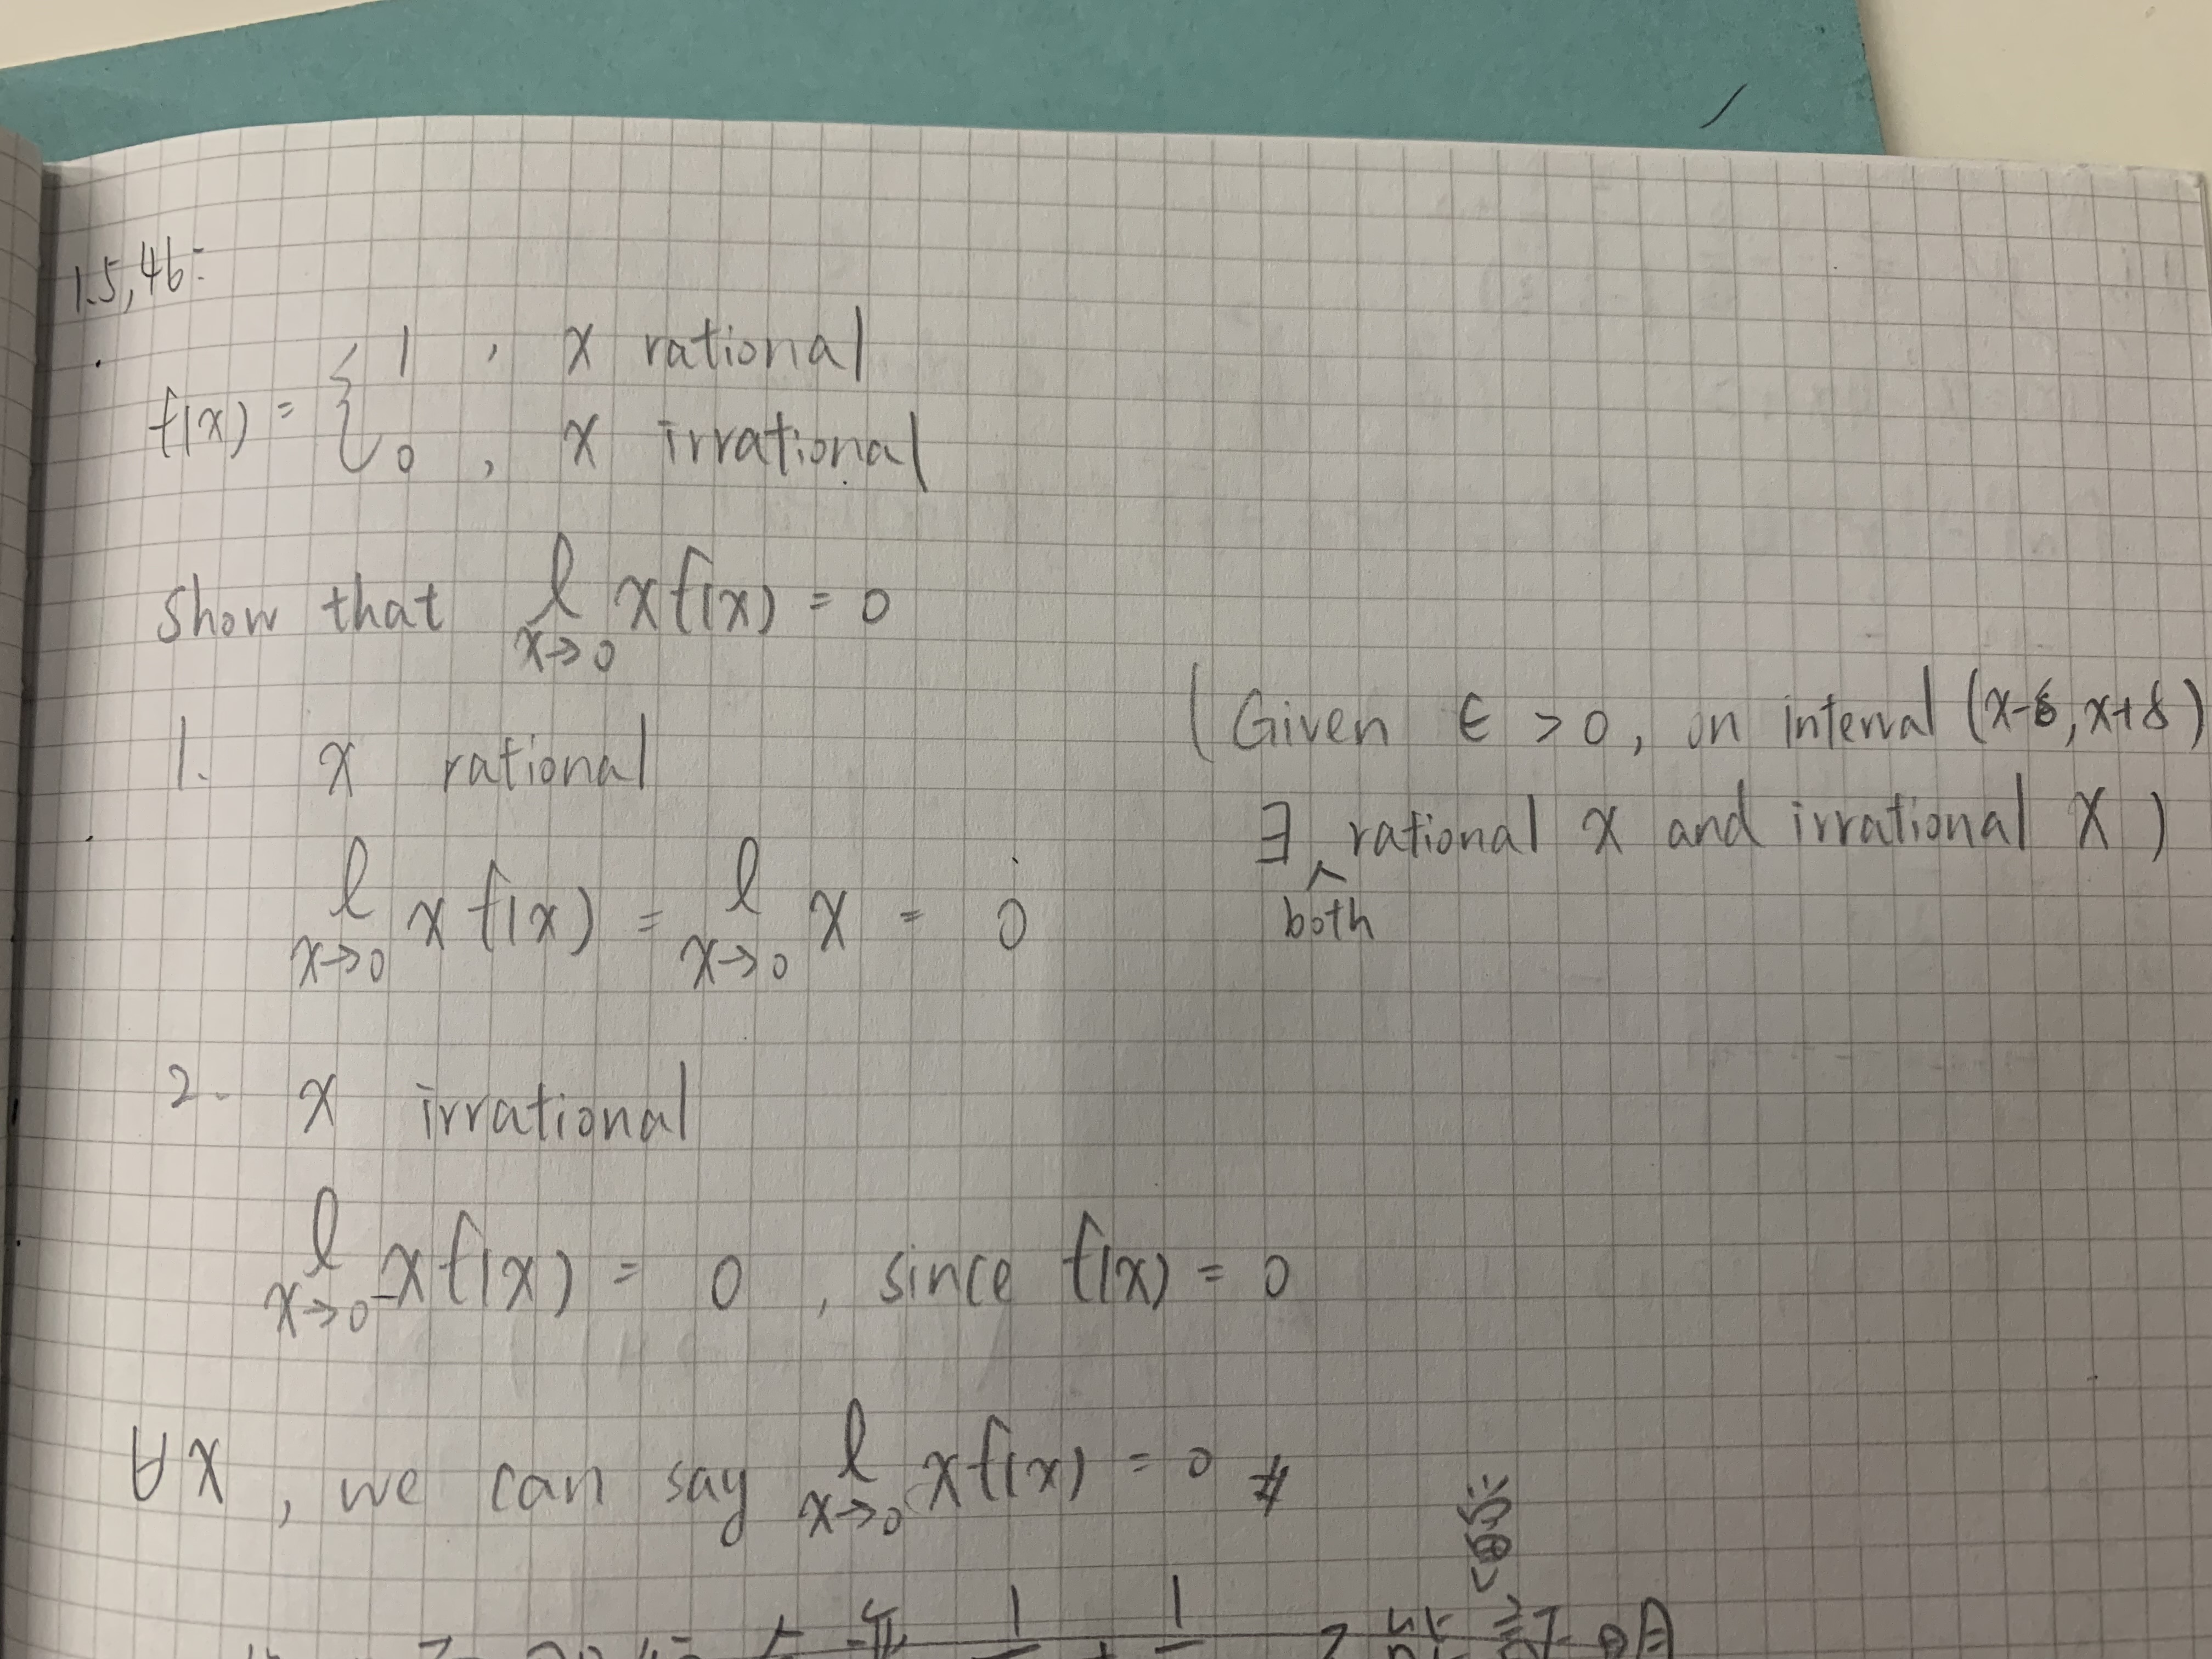 1.5, 46:
f(x) = { 1 , x rational
0 , x irrational
Show that l x→0 xf(x) = 0
1. x rational
(Given ε > 0, on interval (x-δ, x+δ)
∃ both rational x and irrational x)
l x→0 x f(x) = l x→0 x = 0
2. x irrational
l x→0 xf(x) = 0 , since f(x) = 0
∀x , we can say l x→0 xf(x) = 0 #